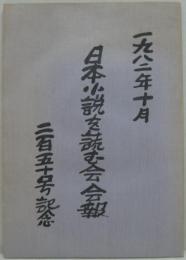 一九八二年十月
日本小説を読む会会報
二百五十号記念